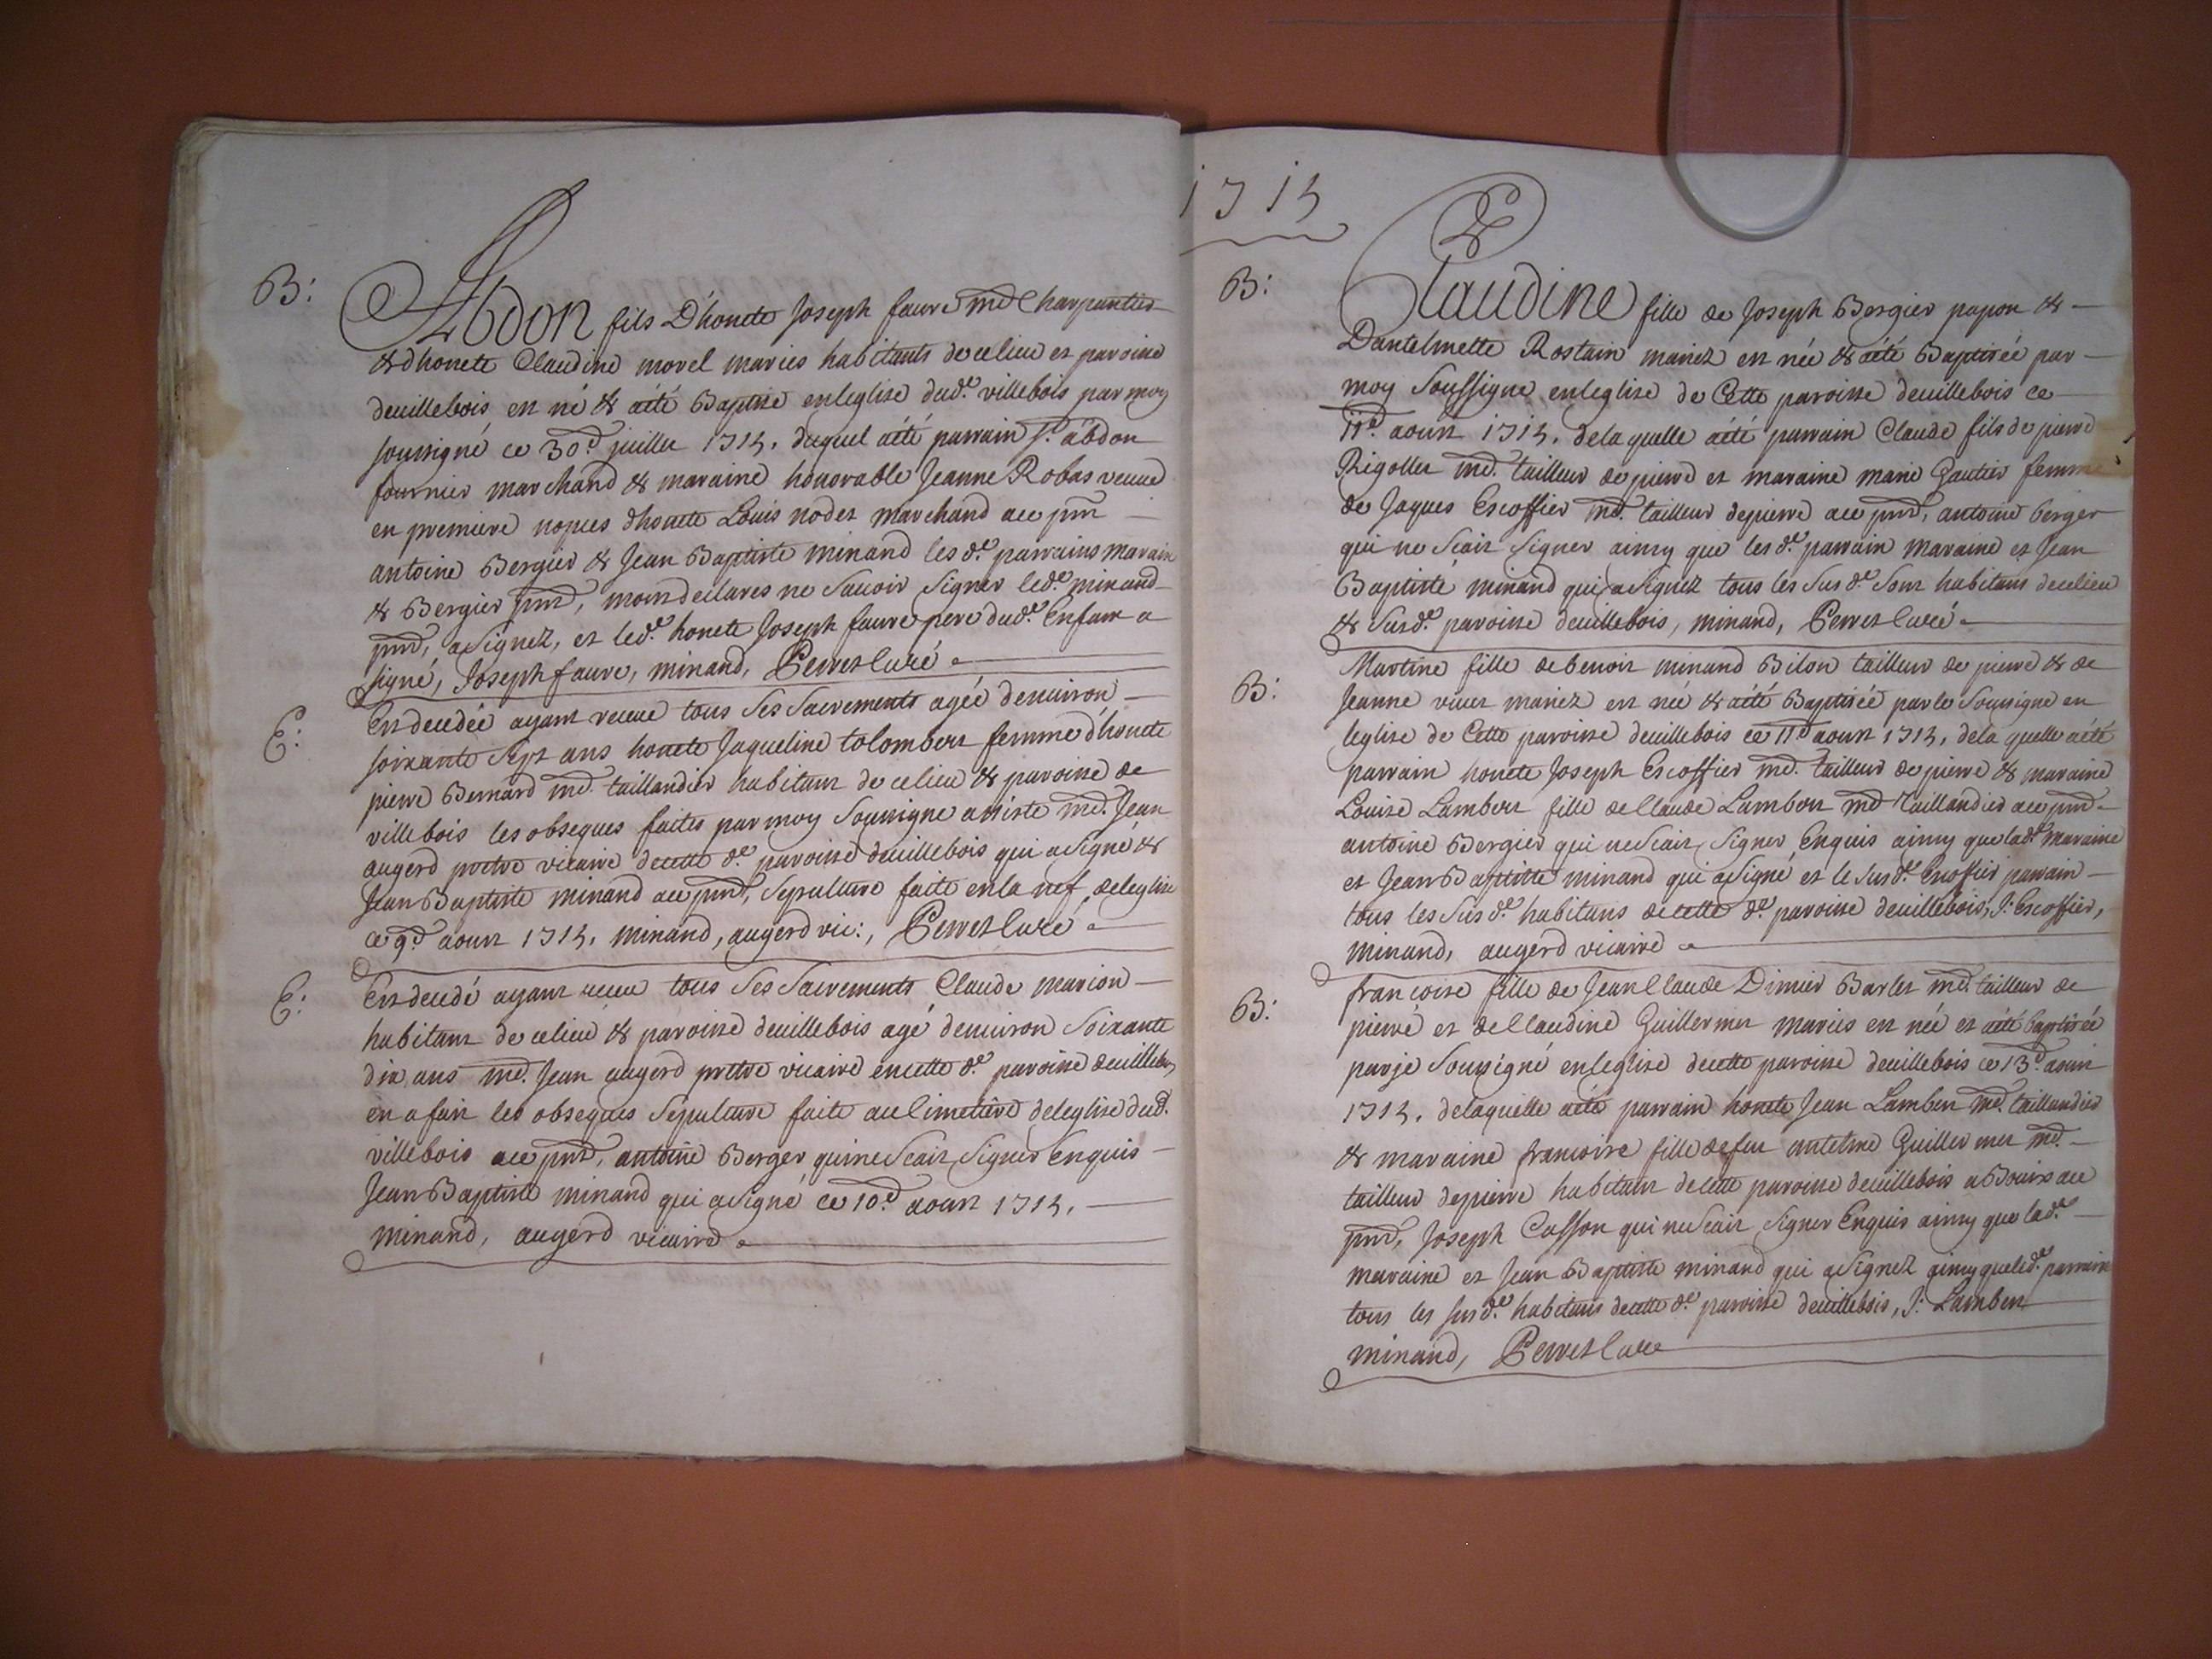 1715
B:
Abdon fils D'honete Joseph faure md Charpantier
& dhonete Claudine morel maries habitants de ce lieu et paroisse
deuillebois est né & aété Baptisé enleglise dud.e villebois par moy
soussigné ce 30.e juillet 1715. duquel aété parrain S.r abdon
fournier marchand & maraine honorable Jeanne Robas veuue
en premiere nopces dhonete Louis nodet marchand ace pnt
antoine Bergier & Jean Baptiste minand les d.e parrains maraine
& Bergier pnt, mont declares ne Sauoir Signer led.e minand
pnt, aSignez, et led.e honete Joseph faure pere dud.e Enfant a
signé, Joseph faure, minand, Perret Curé
E:
Est decedée ayant receue tous Ses Sacrements agée denuiron
soixante Sept ans honete Jaqueline Colombet femme d'honete
pierre Bernard md. taillandier habitant de ce lieu & paroisse de
villebois les obseques faites par moy Soussigne assisté m.e Jean
augerd pretre vicaire decette d.e paroisse deuillebois qui asigné &
Jean Baptiste minand ace pnt, Sepulture faite enla nef deleglise
ce 9.e aoust 1715. minand, augerd vic:, Perret Curé
E:
Est decedé ayant receu tous Ses Sacrements Claude marion
habitant de celieu & paroisse deuillebois agé denuiron Soixante
dix ans m.e Jean augerd pretre vicaire encette d.e paroisse deuillebois
en a fait les obseques Sepulture faite au Cimetiere deleglise dud.
villebois ace pnt, antoine Berger qui ne Scait Signer Enquis
Jean Baptiste minand qui asigné ce 10.e aoust 1715.
minand, augerd vicaire
B:
Claudine fille de Joseph Bergier papon &
Dantelmette Rostain mariez est née & aété Baptisée par
moy Soussigné enleglise de Cette paroisse deuillebois ce
11.e aoust 1715. delaquelle aété parrain Claude fils de pierre
Rigollet md. tailleur de pierre et maraine marie Gautier femme
de Jaques Escoffier md. tailleur depierre ace pnt, antoine berger
qui ne Scait Signer ainsy que les d.e parrain maraine et Jean
Baptiste minand qui aSignez tous les Sus d.e Sont habitans decelieu
& Susd.e paroisse deuillebois, minand, Perret Curé
B:
Martine fille de benoit minand Bilon tailleur de pierre & de
Jeanne viuet mariez est née & aété Baptisée par le Soussigné en
leglise de Cette paroisse deuillebois ce 11.e aoust 1715, delaquelle aété
parrain honete Joseph Escoffier md. tailleur de pierre & maraine
Louise Lambert fille de Claude Lambert md Taillandier ace pnt
antoine Bergier qui ne Scait Signer Enquis ainsy que lad.e maraine
et Jean Baptiste minand qui aSigné et le Sus d.e Escoffier parrain
tous les Sus d.e habitans decette d.e paroisse deuillebois, J: Escoffier,
minand, augerd vicaire
B:
francoise fille de Jean Claude Dimier Barlet md. tailleur de
pierre et de Claudine Guillermet maries est née et aété baptisée
par je Soussigné enleglise decette paroisse deuillebois ce 13.e aoust
1715. delaquelle aété parrain honete Jean Lambert md. taillandier
& maraine francoise fille defeu antelme Guillermet md.
tailleur depierre habitant decette paroisse deuillebois a Bouis ace
pnt, Joseph Casson qui ne Scait Signer Enquis ainsy que lad.e
maraine et Jean Baptiste minand qui aSignez ainsy que led.e parrain
tous les sus d.e habitans decette d.e paroisse deuillebois, J: Lambert
minand, Perret Curé